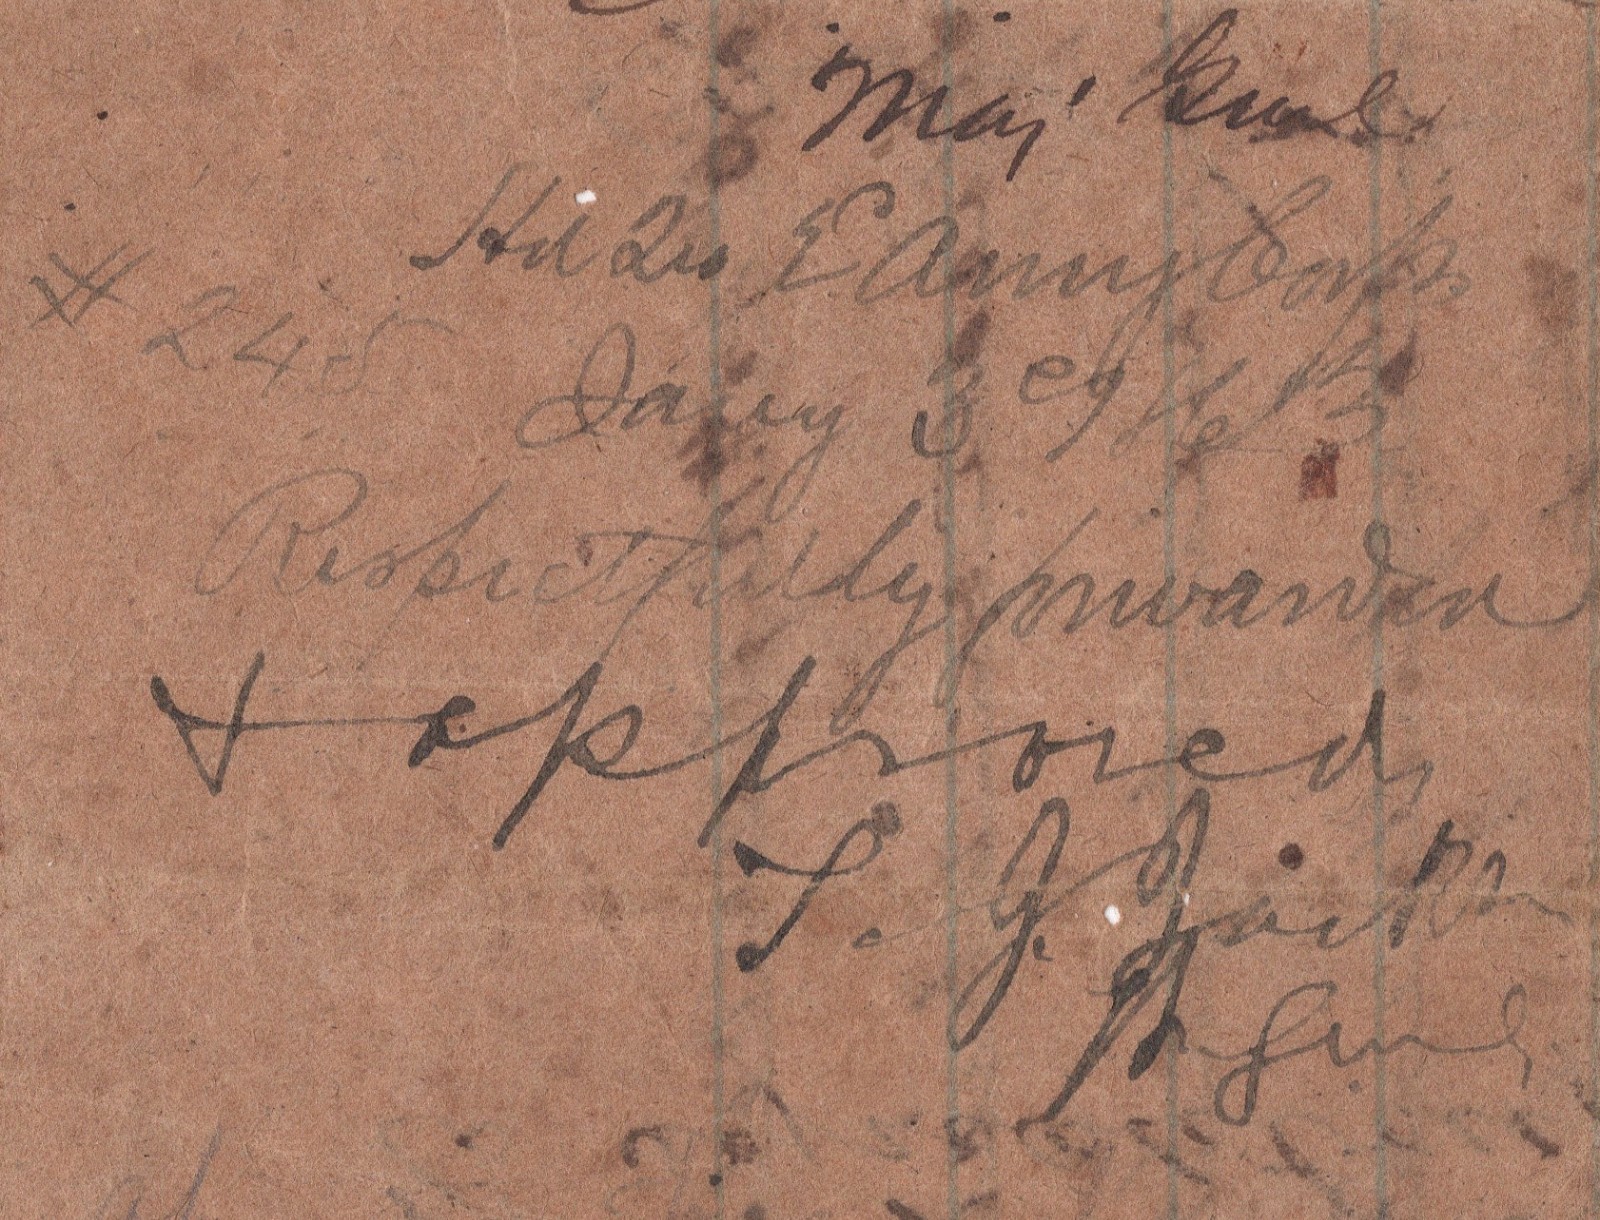 Maj' Genl.
Hd Qrs 2 Army Corps
# 245
Jany 3rd 1863
Respectfully forwarded
& approved,
T. J. Jackson
Lt. Genl